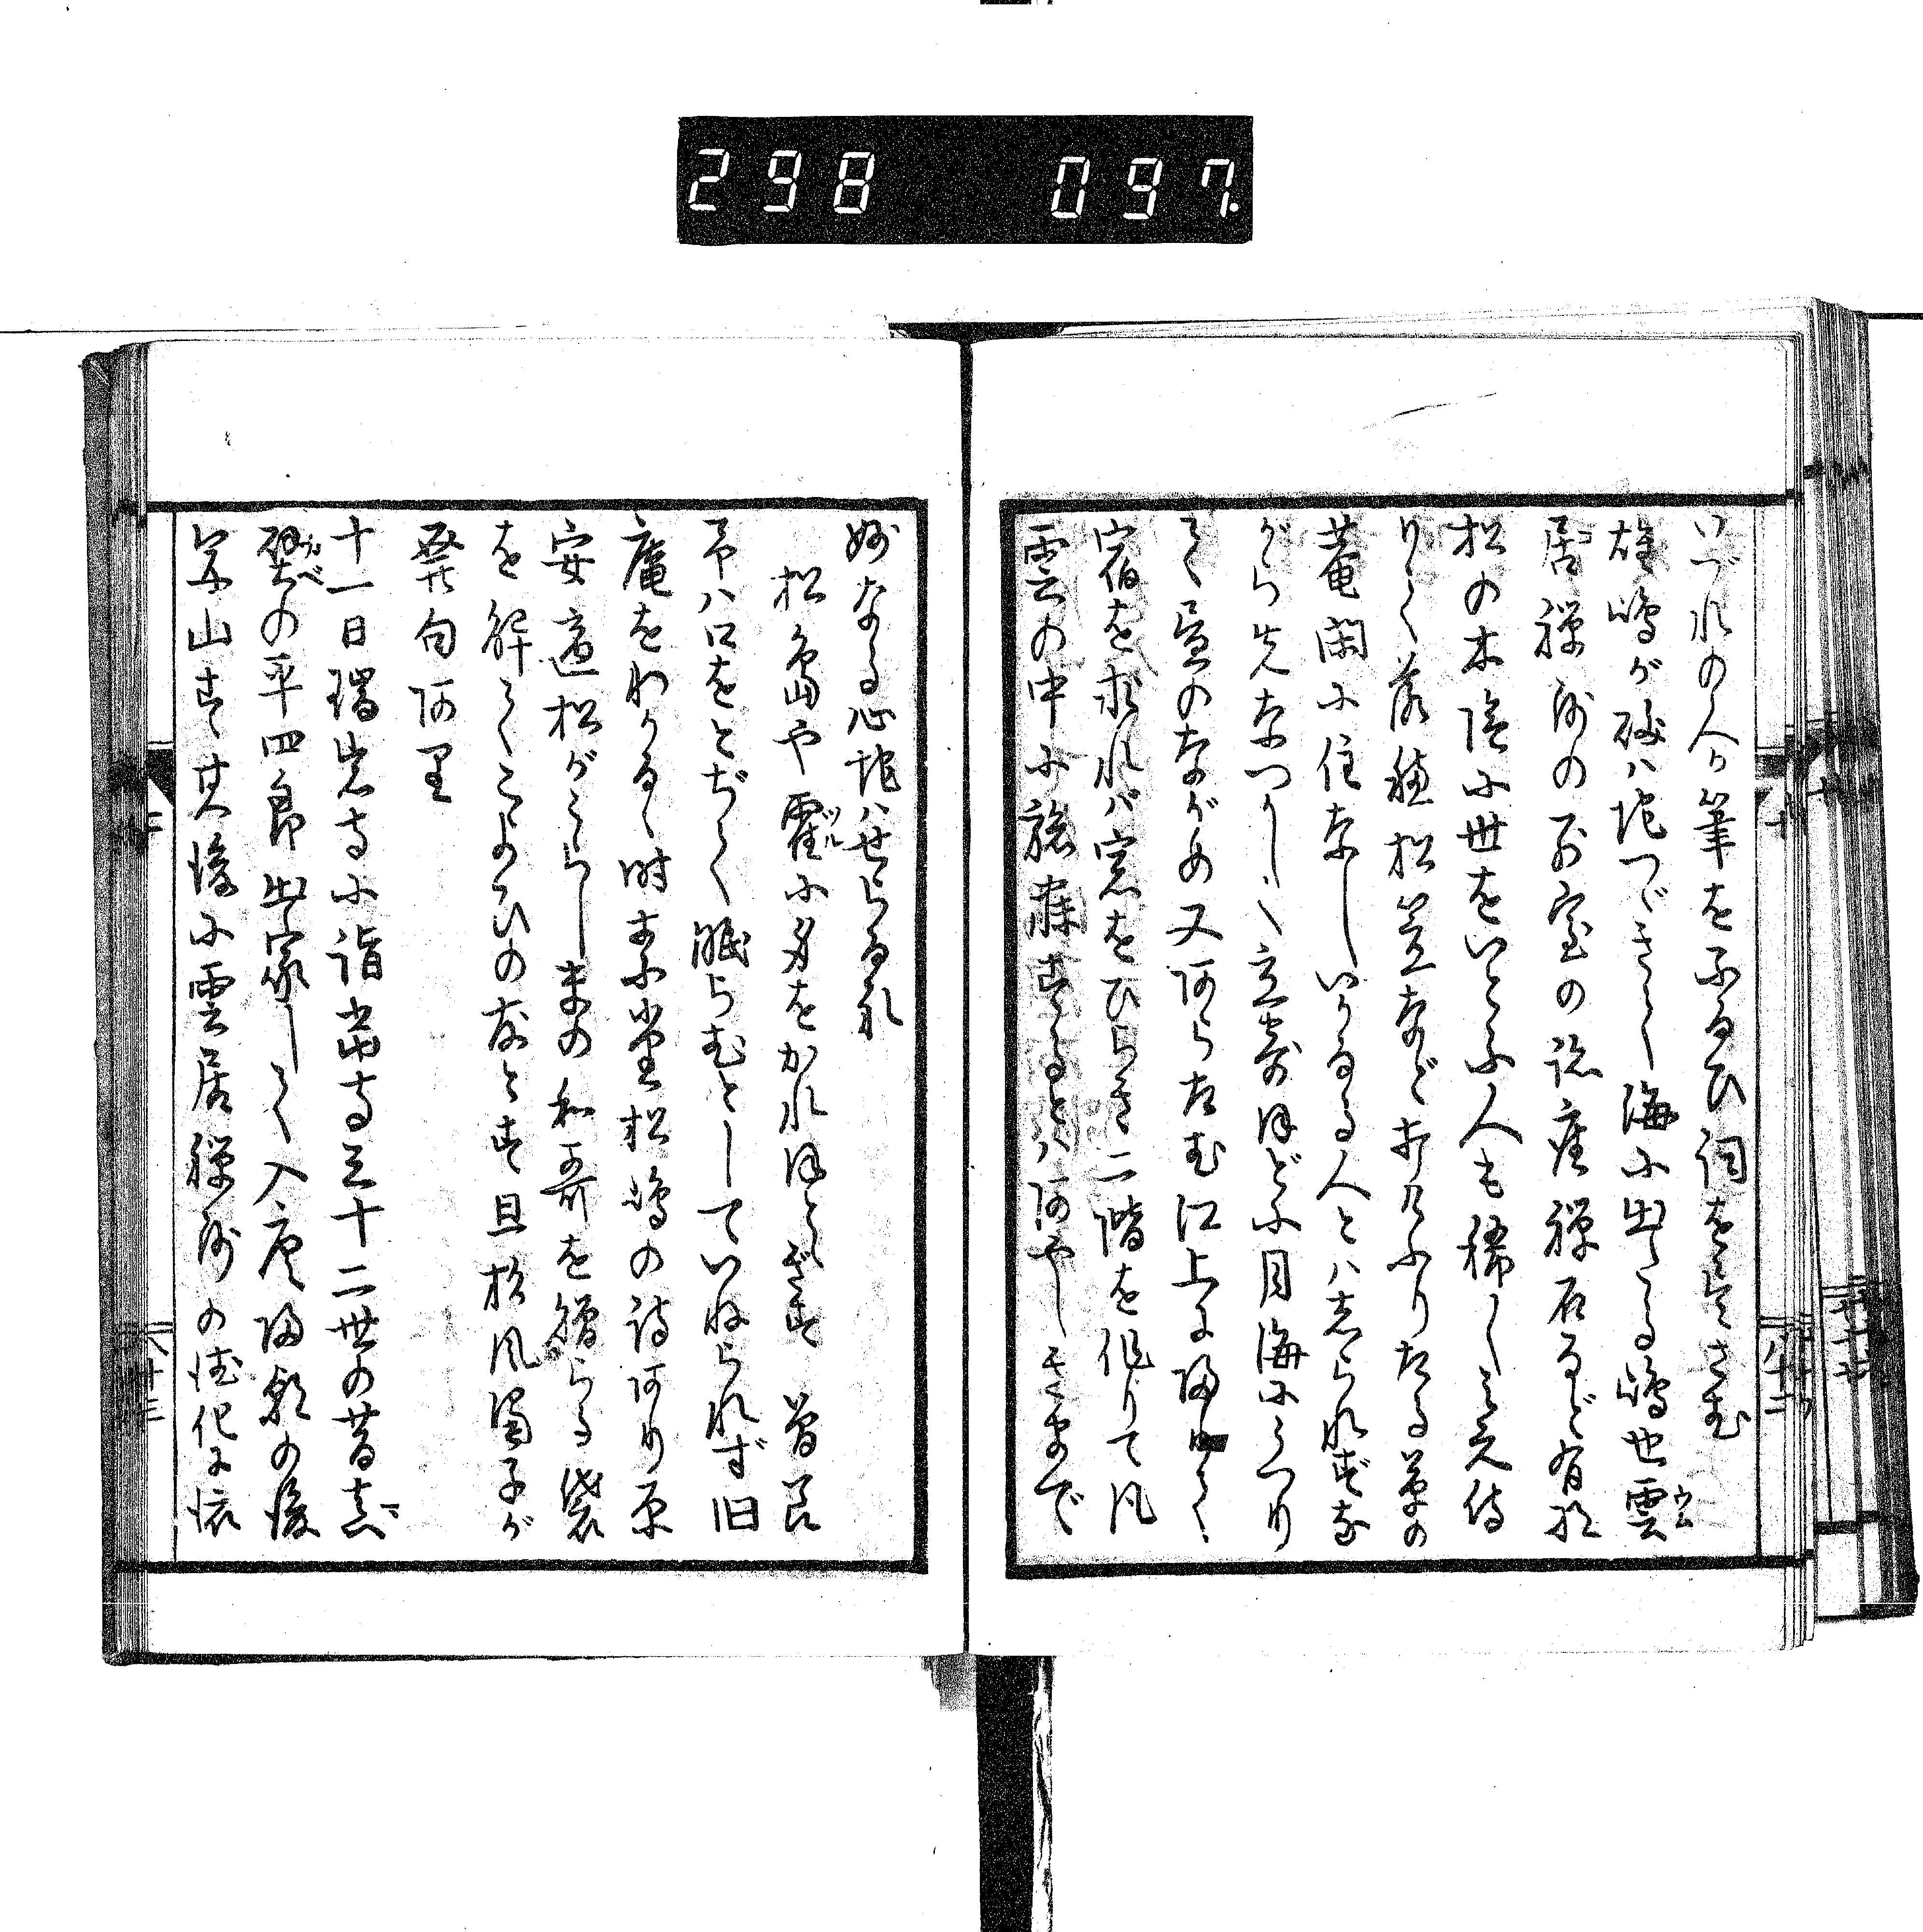 298 097
いづれの人か筆をふるひ詞を尽さむ
雄嶋が磯ハ地つゞきて海に出たる嶋也雲ウン
居ゴ禅師の別室の跡座禅石など有将
松の木陰に世をいとふ人も稀々見え侍
りて落穂松笠など打けふりたる草の
菴閑に住なしいかなる人とハしられずな
がら先なつかしく立寄ほどに月海にうつり
て昼のながめ又あらたむ江上に帰りて
宿を求れバ窓をひらき二階を作りて風
雲の中に旅寐するこそハあやしきまで
妙なる心地ハせらるれ
松島や霍ツルに身をかれほとゝぎす 曽良
予ハ口をとぢて眠らむとしていねられず旧
庵をわかるゝ時素堂松嶋の詩あり原
安適松がうらしまの和哥を贈らる袋
を解てこよひの友とす且杉風濁子が
発句あり
十一日瑞岩寺に詣当寺三十二世の昔真
壁の平四郎出家して入唐帰朝の後
開山す其後に雲居禅師の徳化に依